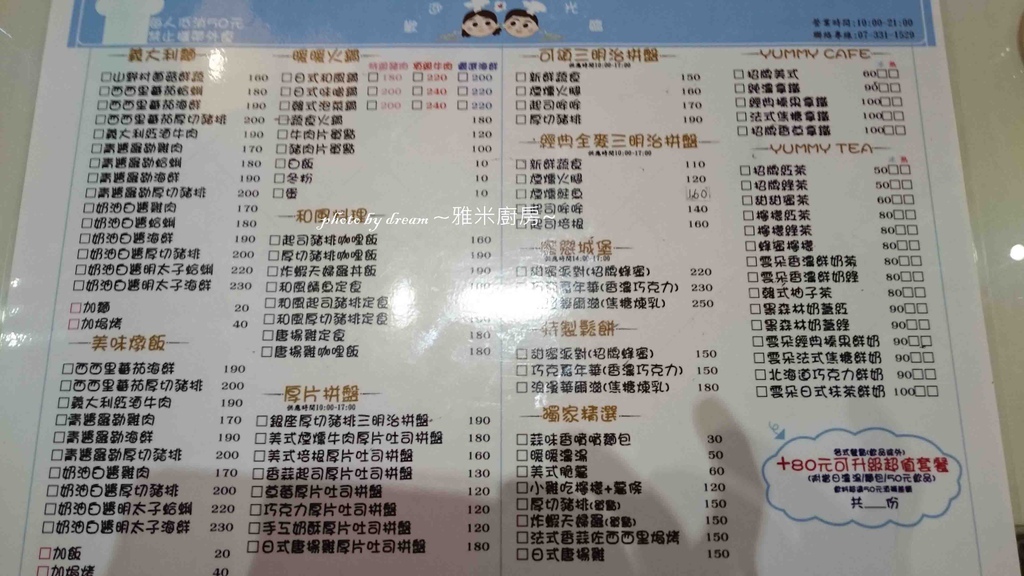 每人低消50元
禁止攜帶外食
營業時間:10:00-21:00
聯絡專線:07-331-1529
義大利麵
山野村菌菇鮮蔬 160
西西里蕃茄蛤蜊 180
西西里蕃茄海鮮 190
西西里蕃茄厚切豬排 200
義大利紅酒牛肉 190
青醬羅勒雞肉 170
青醬羅勒蛤蜊 180
青醬羅勒海鮮 190
青醬羅勒厚切豬排 200
奶油白醬雞肉 170
奶油白醬蛤蜊 180
奶油白醬海鮮 190
奶油白醬厚切豬排 200
奶油白醬明太子蛤蜊 220
奶油白醬明太子海鮮 230
加麵 20
加焗烤 40
美味燉飯
西西里蕃茄海鮮 190
西西里蕃茄厚切豬排 200
義大利紅酒牛肉 190
青醬羅勒雞肉 170
青醬羅勒海鮮 190
青醬羅勒厚切豬排 200
奶油白醬雞肉 170
奶油白醬厚切豬排 200
奶油白醬明太子蛤蜊 220
奶油白醬明太子海鮮 230
加飯 20
加焗烤 40
暖暖火鍋
日式和風鍋 180 220 200
日式味噌鍋 200 240 220
韓式泡菜鍋 200 240 220
蔬食火鍋 180
牛肉片單點 120
豬肉片單點 100
白飯 10
冬粉 10
蛋 10
和風料理
起司豬排咖哩飯 160
厚切豬排咖哩飯 190
炸蝦天婦羅丼飯 190
和風鯖魚定食
和風起司豬排定食
和風厚切豬排定食
唐揚雞定食 180
唐揚雞咖哩飯 180
厚片拼盤
供應時間10:00-17:00
銀座厚切豬排三明治拼盤 190
美式煙燻牛肉厚片吐司拼盤 180
美式培根厚片吐司拼盤 160
香蒜起司厚片吐司拼盤 130
草莓厚片吐司拼盤 120
巧克力厚片吐司拼盤 120
手工奶酥厚片吐司拼盤 120
日式唐揚雞厚片吐司拼盤 180
可頌三明治拼盤
供應時間10:00-17:00
新鮮蔬食 150
煙燻火腿 160
起司哞哞 170
厚切豬排 190
經典全麥三明治拼盤
供應時間10:00-17:00
新鮮蔬食 110
煙燻火腿 120
煙燻鮭魚 160
起司哞哞 140
起司培根 160
蜜戀城堡
供應時間14:00-17:00
甜蜜派對(招牌蜂蜜) 220
巧克嘉年華(香溫巧克力) 230
浪漫華爾滋(焦糖煉乳) 250
特製鬆餅
甜蜜派對(招牌蜂蜜) 150
巧克嘉年華(香溫巧克力) 150
浪漫華爾滋(焦糖煉乳) 180
獨家精選
蒜味香噴噴麵包 30
暖暖濃湯 50
美式脆薯 60
小雞吃檸檬+薯條 120
厚切豬排(單點) 150
炸蝦天婦羅(單點) 150
法式香蒜佐西西里焗烤 150
日式唐揚雞 150
YUMMY CAFE
招牌美式 60
純濃拿鐵 90
經典榛果拿鐵 100
法式焦糖拿鐵 100
招牌香草拿鐵 100
YUMMY TEA
招牌紅茶 50
招牌綠茶 50
甜甜蜜茶 60
檸檬紅茶 80
檸檬綠茶 80
蜂蜜檸檬 80
雲朵香濃鮮奶茶 80
雲朵香濃鮮奶綠 80
韓式柚子茶 80
黑森林奶蓋紅 90
黑森林奶蓋綠 90
雲朵經典榛果鮮奶 90
雲朵法式焦糖鮮奶 90
北海道巧克力鮮奶 90
雲朵日式抹茶鮮奶 100
各式餐點(飲品除外)
+80元可升級超值套餐
(附當日濃湯/麵包/50元飲品)
飲料超過50元須補差額
共___份
photo by dream ~雅米廚房~